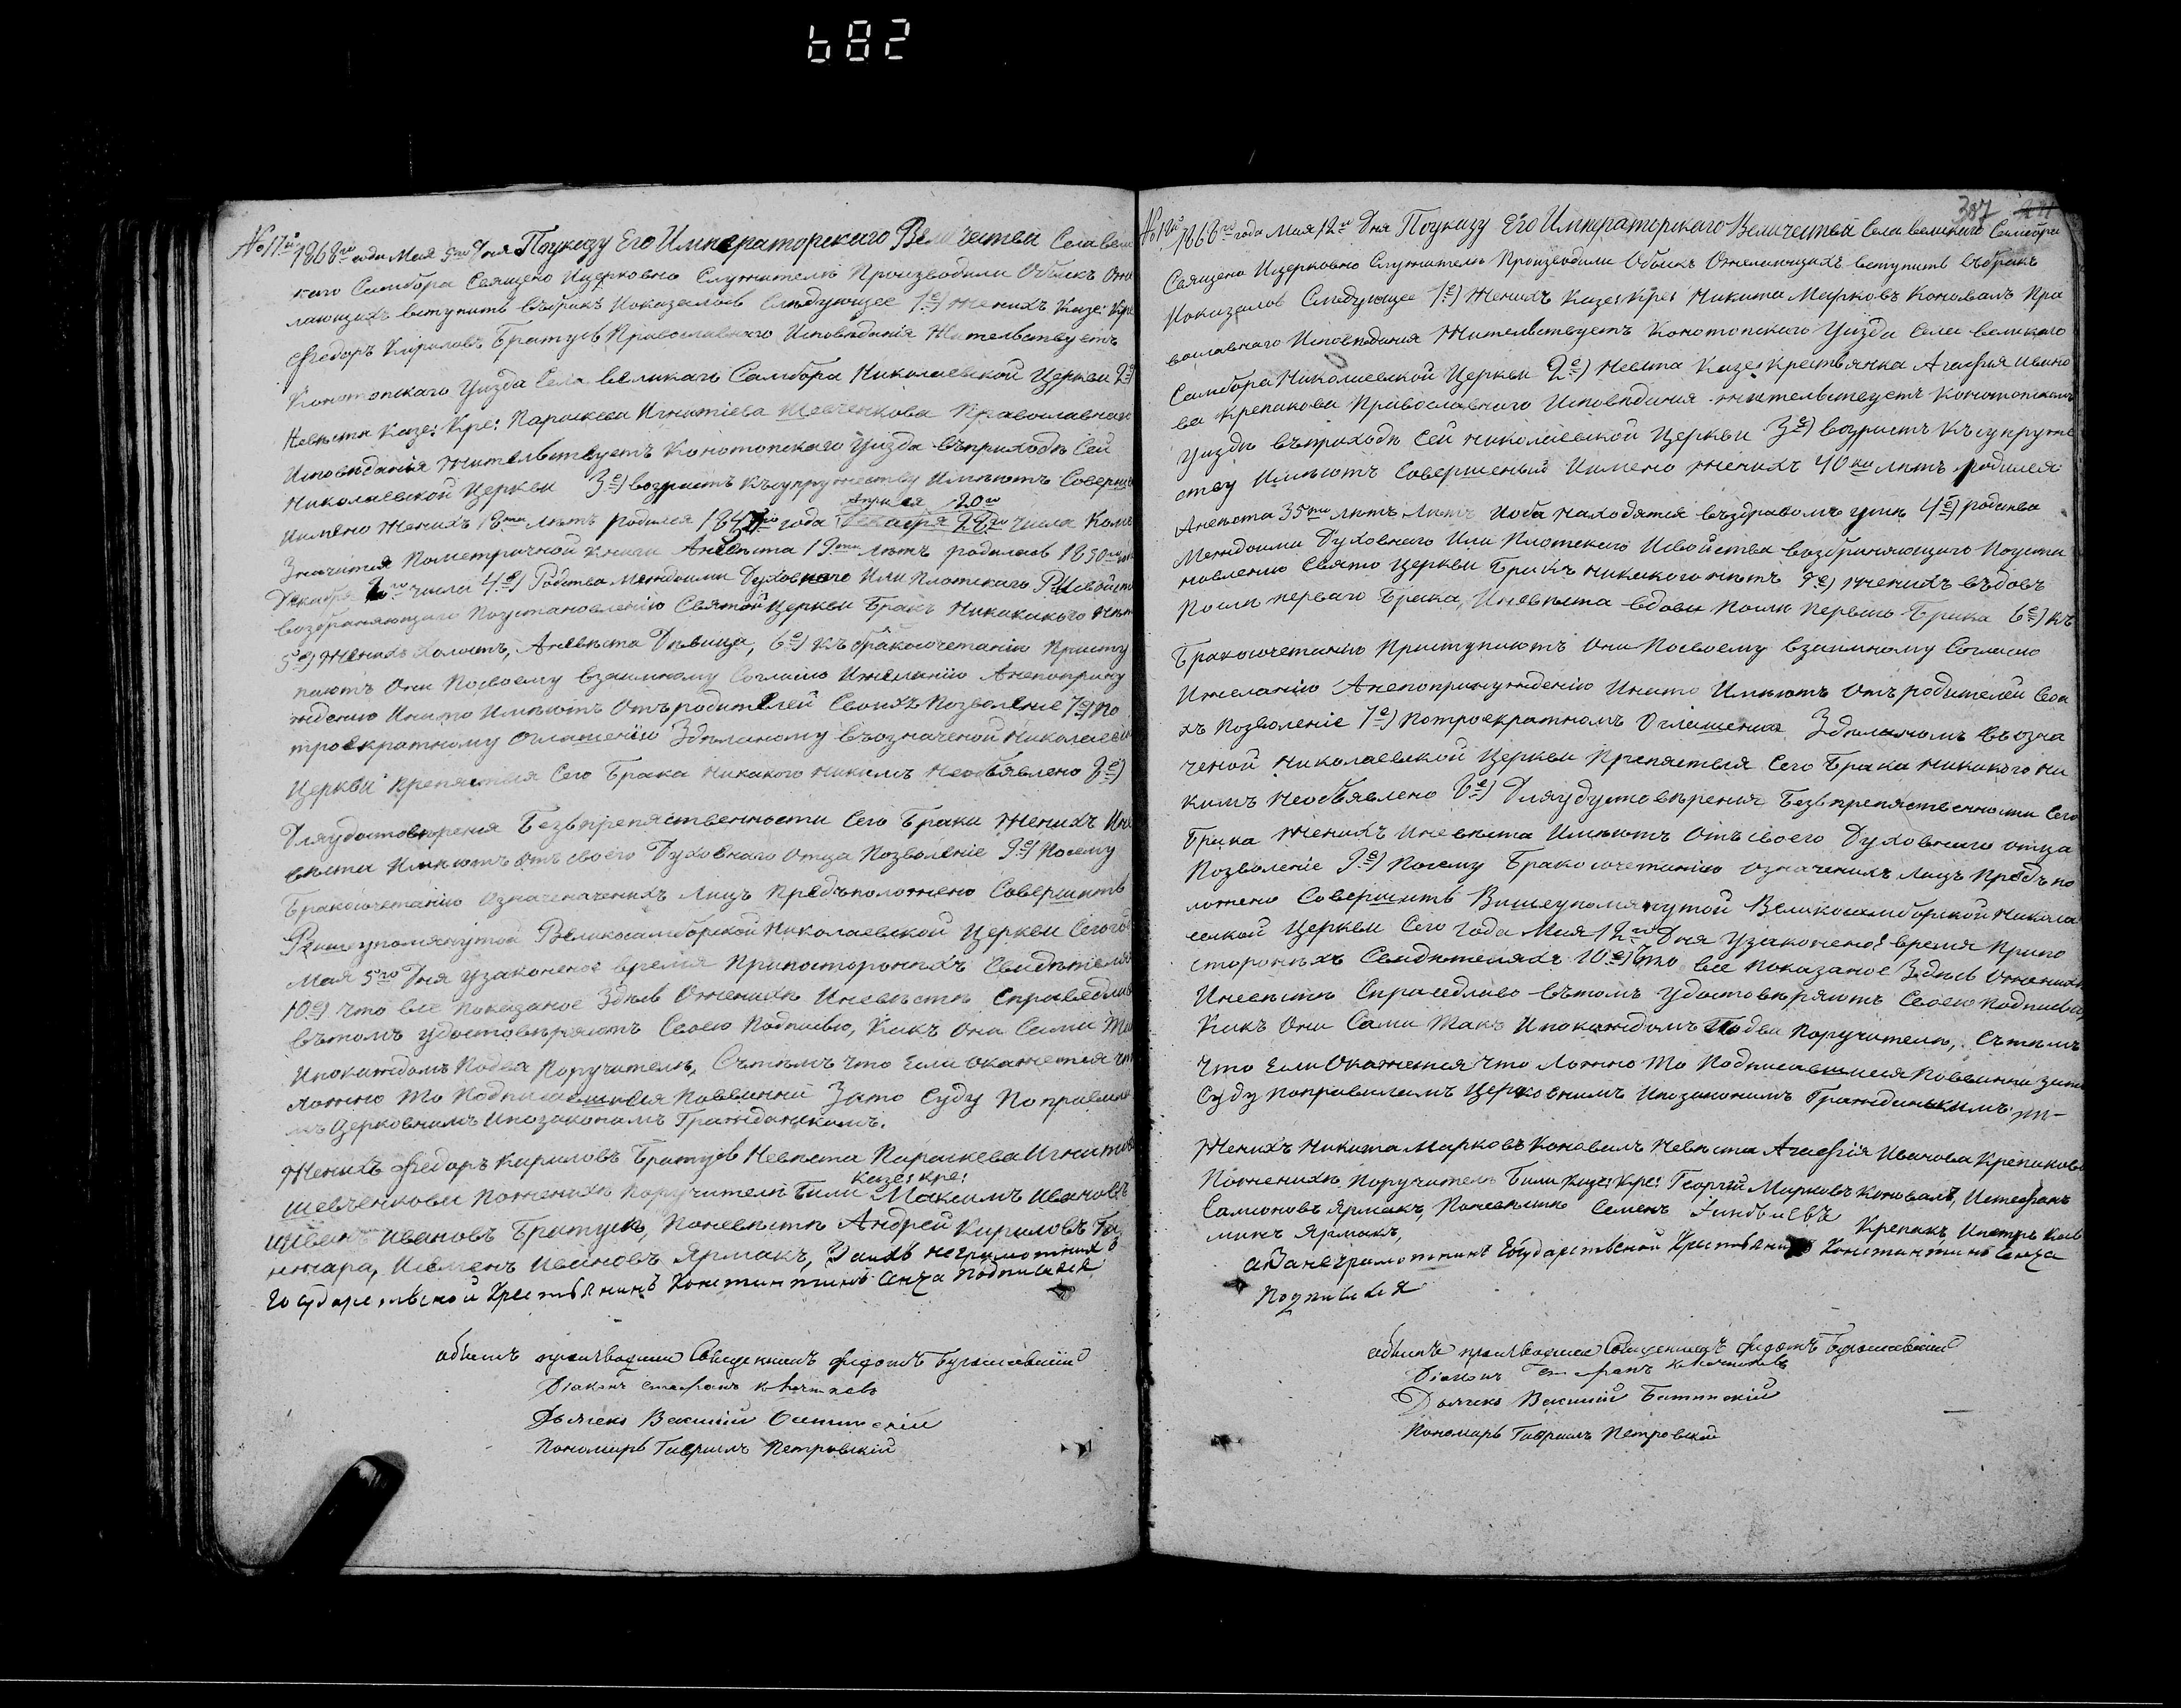 682
№ 17й 1868го года Мая 5го Дня Поуказу Его Императорскаго Величества Села Вели
каго Самбора Священо Ицерковно Служители Производили Обыск Оже
лающихъ вступить въбракъ Показалось Следующее 1е) Женихъ Казе: Кре
Федоръ Кириловъ Братусъ Православнаго Исповеданія Жительствуетъ
Конотопскаго Уизда Села Великаго Самбора Николаевской Церкви 2е
Невѣста Казе: Кре: Параскева Игнатіева Шевченкова Православнаго
Исповѣданія Жительствуетъ Конотопскаго Уизда въприходѣ Сей
Николаевской Церкви 3е) возрастъ Късупружеству Имѣютъ Соверше
Апреля 20го
Имѣно Женихъ 18ти лѣтъ родился года числа
Значится Пометричной Книги Аневѣста 19ти лѣтъ родилась 1850го
Декабря числа 4е) Родства Междоими Духовнаго Или Плотскаго
возбраняющаго Поустановленію Святой Церкви Бракъ Никакого Нѣтъ
5е) Женихъ Холостъ, Аневѣста Дѣвица, 6е) Къ бракосочетанію Присту
паютъ Они Посвоему взаимному Согласію Ижеланію Анепоприну
жденію Инато Имѣютъ Отъродителей Своихъ Позволеніе 7е) По
троекратному Оглашенію Здѣланому въозначеной Николаевск
Церкви Препятствія Сего Брака Никакого Никимъ Необъявлено 8е)
Дляудостовѣренія Безъпрепятственности Сего Брака Женихъ Ине
вѣста Имѣютъ Отъ своего Духовнаго Отца Позволеніе 9е) Посему
Бракосочетанію Означеначенихъ Лицъ Предъположено Совершить
Вишеупомянутой Великосамборской Николаевской Церкви Сегого
Мая 5го Дня Узаконеное время Припосторонихъ Свидѣтеляхъ
10е) Что все Показаное Здѣсь Оженихѣ Иневѣстѣ Справедливо
вътомъ удостовѣряютъ Своею Подписью, Какъ Они Сами Та
Ипокаждомъ Подва Поручителѣ, Сътѣмъ Что Если Окажется Что
Ложно То Подписавшиеся Повинни Зато Суду Поправила
мъ Церковнимъ Ипозаконамъ Гражданскимъ.
Женихъ Федоръ Кириловъ Братусъ Невѣста Параскева Игнатіев
Казе: Кре:
Шевченкова Поженихѣ Поручители Били Максимъ Ивановъ
Ивановъ Братусъ, Поневѣстѣ Андрей Кириловъ
Исеменъ Ивановъ Ярмакъ, Заихъ неграмотнихъ
Государственой Крестьянинъ Константинъ Сенча Подписался
обыскъ производили Священникъ Федотъ
Діаконъ Стефанъ
Дьячекъ Василій
Пономарь Гавриилъ Петровскій
307
№ 18й 1868го года Мая 12го Дня Поуказу Его Императорскаго Величества Села Великаго Самбора
Священо Ицерковно Служители Производили Обыск Ожелающихъ вступить въбракъ
Показалось Следующее 1е) Женихъ Казе: Кре: Никита Марковъ Коновалъ Пра
вославнаго Исповѣданія Жительствуетъ Конотопскаго Уизда Села Великаго
Самбора Николаевской Церкви 2е) Невѣста Казе: Крестьянка Агафія Ивано
ва Крепакова Православнаго Исповѣданія жительствуетъ Конотопскомъ
Уиздѣ въприходѣ Сей Николаевской Церкви 3е) возрастъ Късупруже
ству Имѣютъ Совершеный Имено Женихъ 40ка лѣтъ родился
Аневѣста 35ти лѣтъ Иоба Находятся въздравомъ умѣ 4е) родства
Междоими Духовнаго Или Плотскаго Исвойства возбраняющаго Поуста
новленію Свято Церкви Бракъ Никакого нѣтъ 5е) Женихъ въдовъ
После перваго Брака, Иневѣста вдова После Перваго Брака 6е) Къ
Бракосочетанію Приступаютъ Они Посвоему взаимному Согласію
Ижеланію Анепопринужденію Инато Имѣютъ Отъродителей Свои
хъ Позволеніе 7е) Потроекратномъ Оглашенія Здѣланомъ въозна
ченой Николаевской Церкви Препятствія Сего Брака Никакого Ни
кимъ Необъявлено 8е) Дляудустовѣренія Безъпрепятственности Сего
Брака Женихъ Иневѣста Имѣютъ Отъ своего Духовнаго отца
Позволеніе 9е) Посему Бракосочетанію означенихъ Лицъ Предъпо
ложено Совершить Вишеупомянутой Великосамборской Никола
евской Церкви Сего Года Мая 12го Дня Узаконеное время Припо
сторонихъ Свидѣтеляхъ 10е) Что все Показаное Здѣсь Оженихѣ
Иневѣстѣ Справедливо вътомъ Удостовѣряютъ Своею Подписью,
Какъ Они Сами Такъ Ипокаждомъ Подва Поручителѣ, Сътѣмъ
Что Если Окажется Что Ложно То Подписавшиеся Повинни зато
Суду Поправиламъ Церковнимъ Ипозаконамъ Гражданскимъ
Женихъ Никита Марковъ Коновалъ Невѣста Агафія Иванова Крепакова
Поженихѣ, Поручители Били Казе: Кре: Георгій Марковъ Коновалъ, Истефанъ
Самсоновъ Ярмакъ, Поневѣстѣ Семенъ Крепакъ, Ипетръ
Ярмакъ,
аЗанеграмотнихъ Государственой Крестьянинъ Константинъ Сенча
Подписался
обыскъ производили Священникъ Федотъ
Діаконъ Стефанъ
Дьячекъ Василій
Пономарь Гавриилъ Петровскій